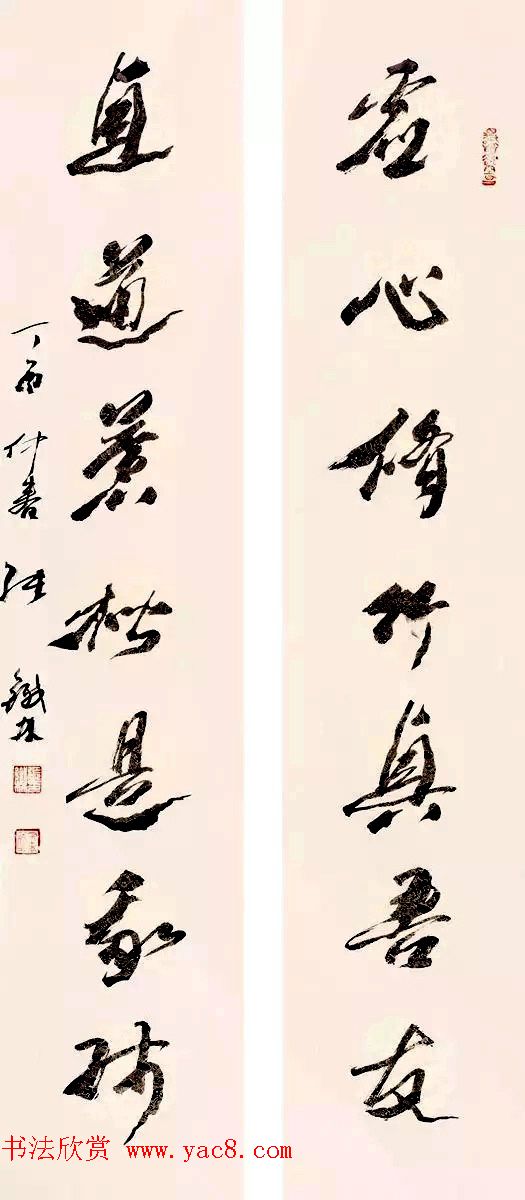 虚心修竹真吾友
直道黄楷是我师
丁酉仲春 张鐵林
书法欣赏 www.yac8.com